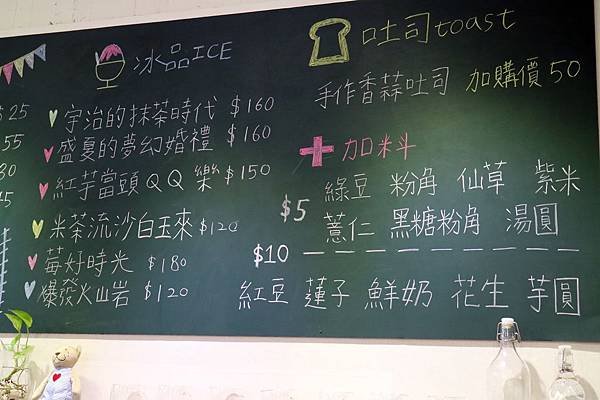 冰品ICE
宇治的抹茶時代 $160
盛夏的夢幻婚禮 $160
紅芋當頭QQ樂 $150
米茶流沙白玉來 $120
莓好時光 $180
爆發火山岩 $120
吐司toast
手作香蒜吐司 加購價50
+加料
$5
綠豆 粉角 仙草 紫米
薏仁 黑糖粉角 湯圓
$10
紅豆 蓮子 鮮奶 花生 芋圓
$25
55
80
45